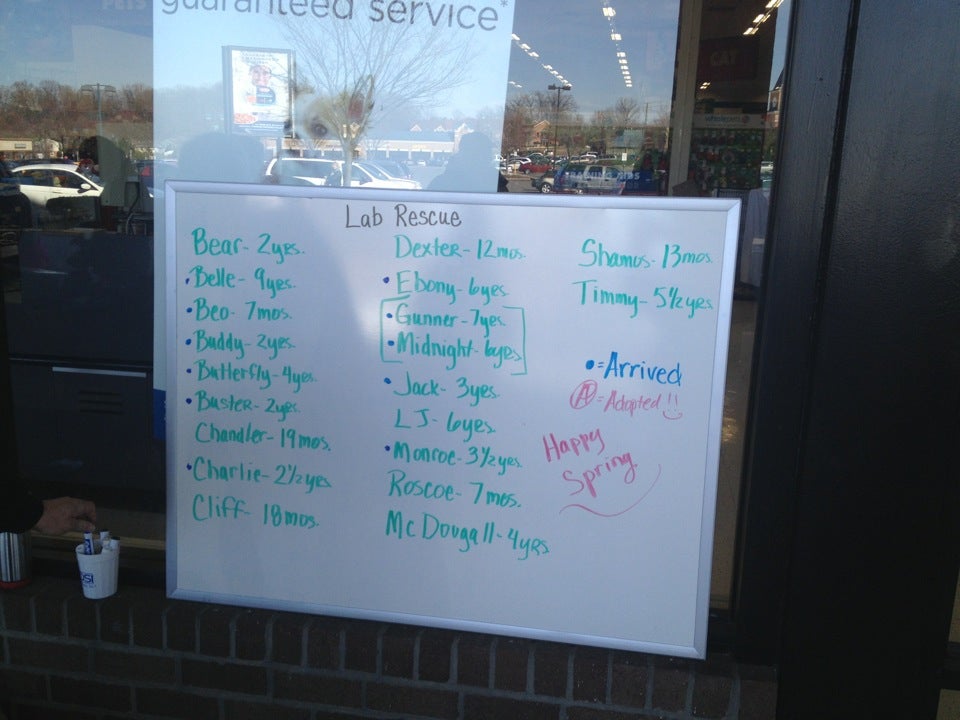 guaranteed service*
CAT
Lab Rescue
Bear - 2yrs.
• Belle - 9yrs.
• Beo - 7mos.
• Buddy - 2yrs.
• Butterfly - 4yrs.
• Buster - 2yrs.
Chandler - 19mos.
• Charlie - 2½yrs
Cliff - 18mos.
Dexter - 12mos.
• Ebony - 6yrs.
• Gunner - 7yrs.
• Midnight - 6yrs
• Jack - 3yrs.
LJ - 6yrs.
• Monroe - 3½yrs.
Roscoe - 7mos.
McDougall - 4yrs.
Shamus - 13mos.
Timmy - 5½yrs.
• = Arrived
A = Adopted!!
Happy
Spring